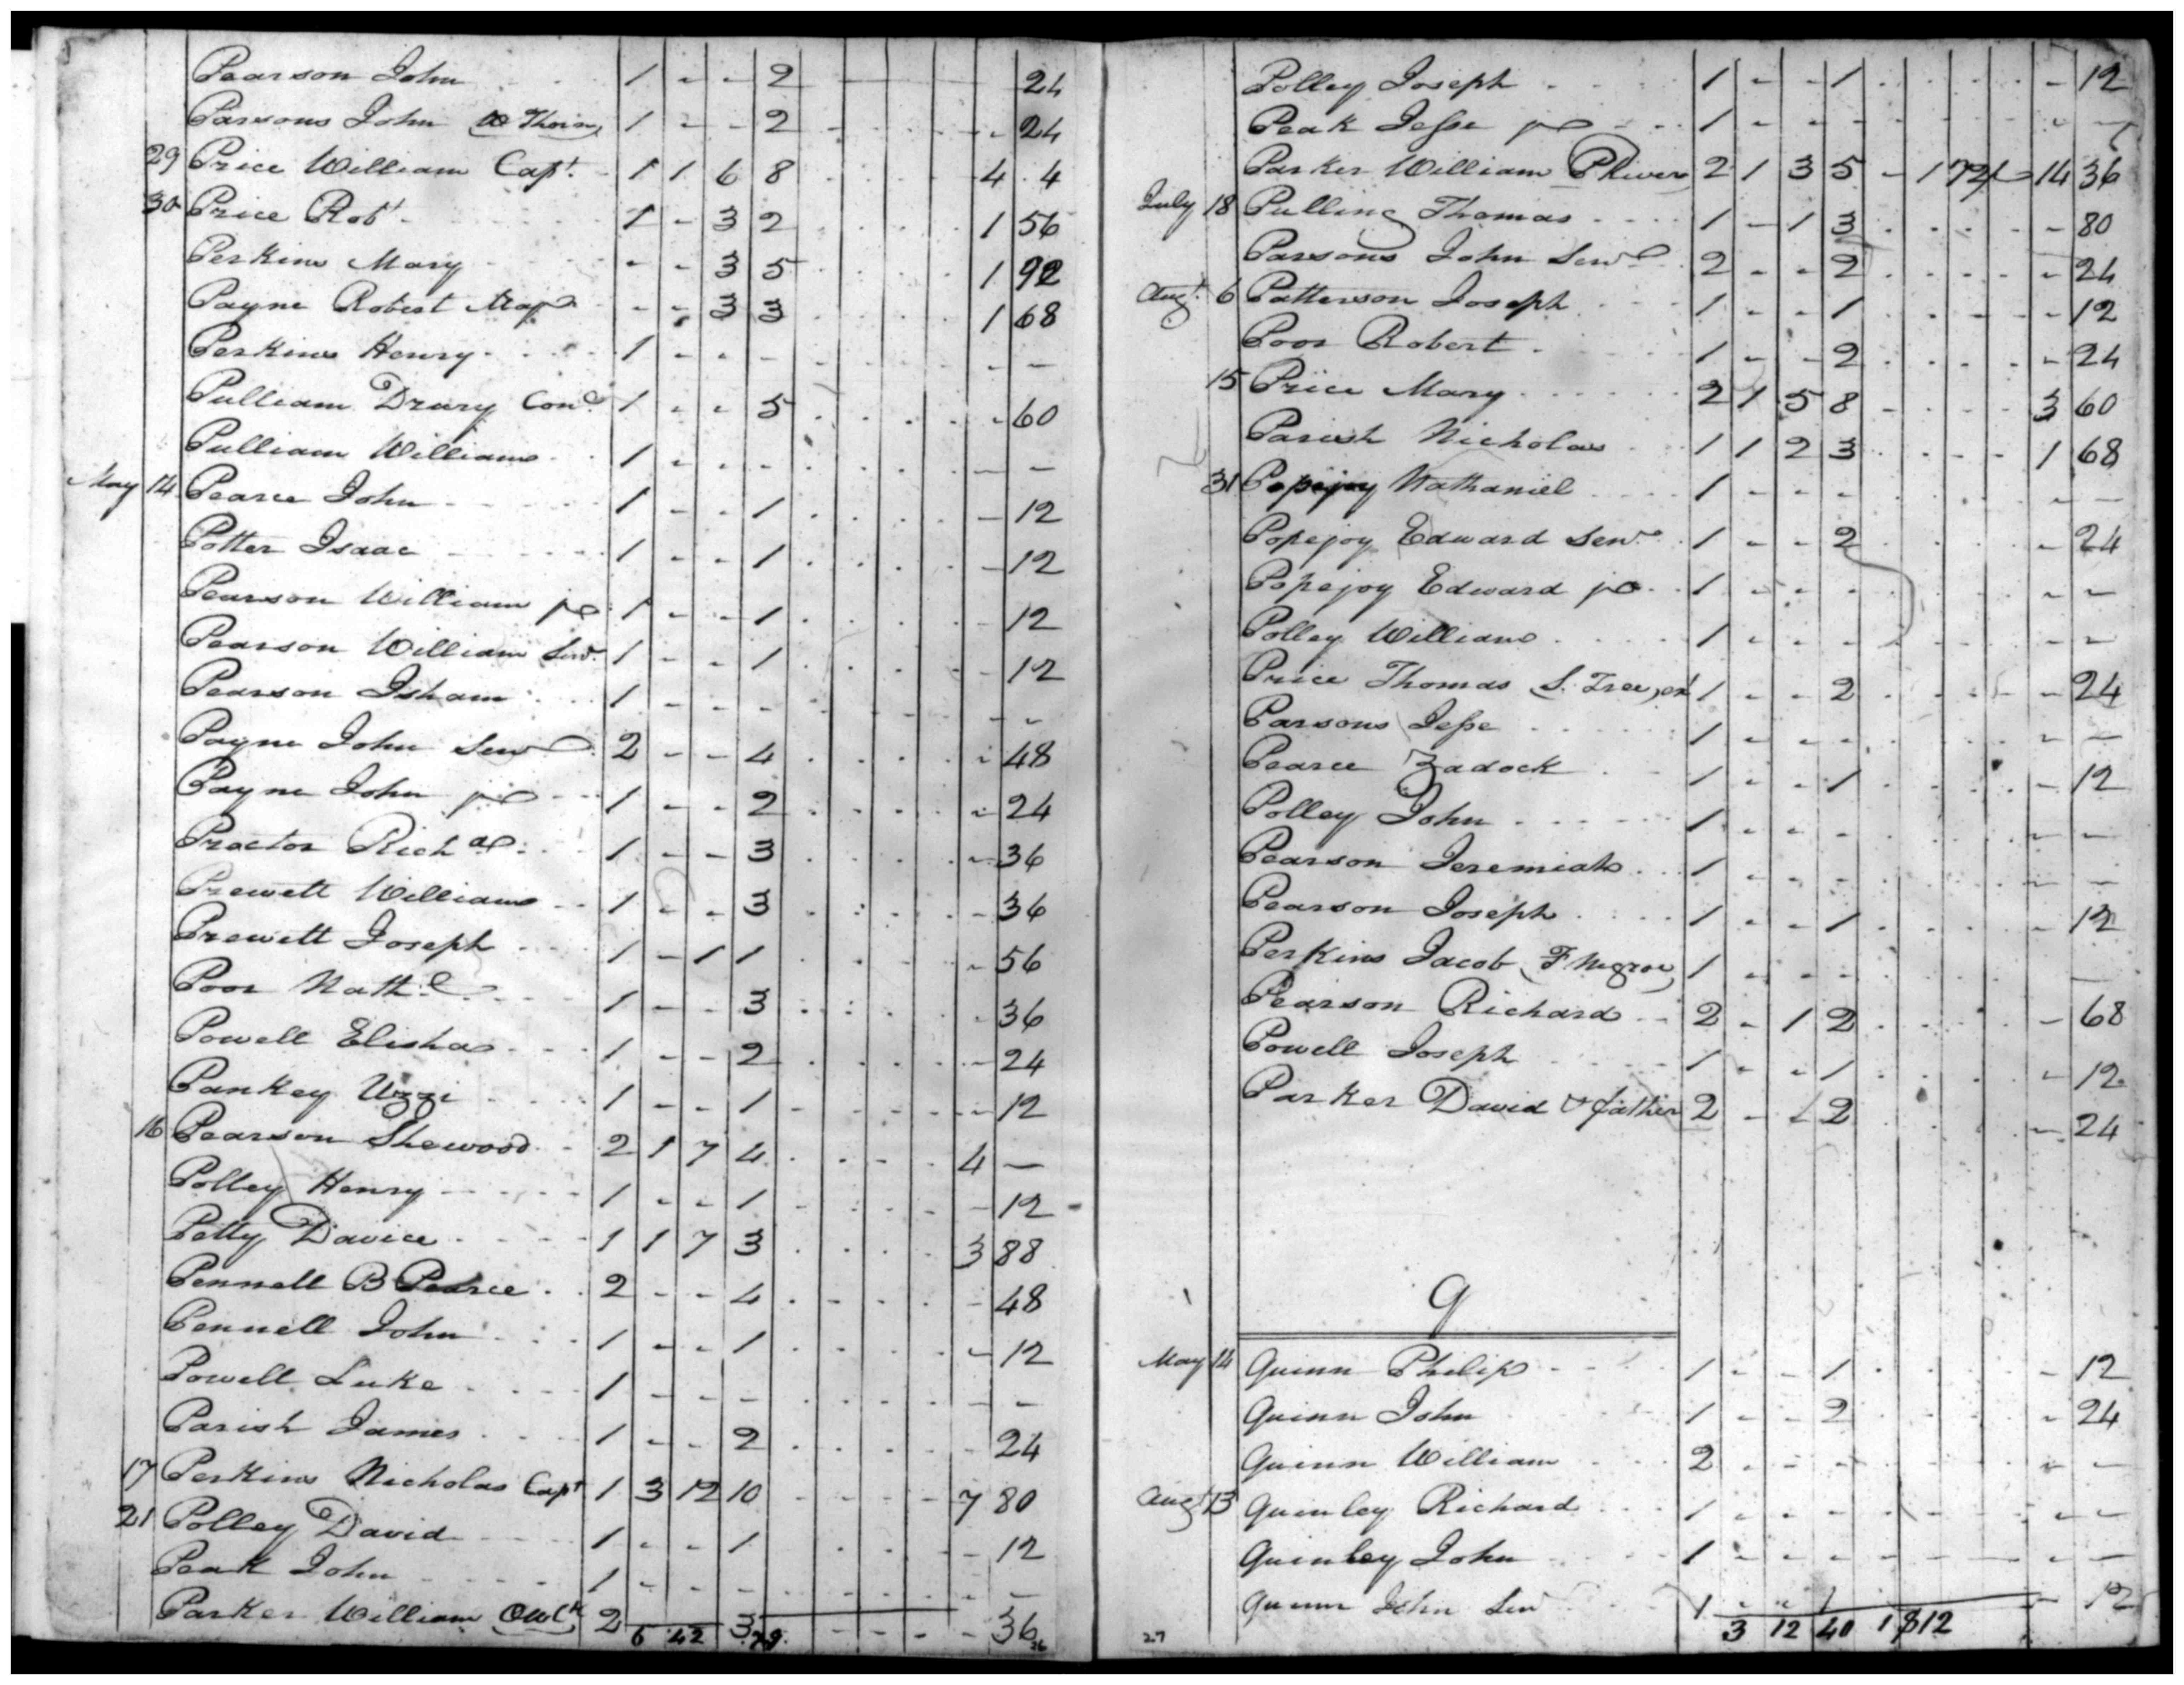 Pearson John 1 - - 2 24
Parsons John (W Thorn) 1 - - 2 - 24
29 Price William Capt. 1 1 6 8 4 4
30 Price Robt. 1 - 3 2 1 56
Perkins Mary - - 3 5 1 92
Payne Robert - - 3 3 1 68
Perkins Henry 1 - - - - -
Pulliam Drury Con 1 - - 5 - 60
Pulliam William 1 - - - - -
May 14 Pearce John 1 - - 1 - 12
Potter Isaac 1 - - 1 - 12
Pearson William jr 1 - - 1 - 12
Pearson William Senr. 1 - - 1 - 12
Pearson Isham 1 - - - - -
Payne John Senr 2 - - 4 - 48
Payne John jr 1 - - 2 - 24
Proctor Richd. 1 - - 3 - 36
Prewett William 1 - - 3 - 36
Prewett Joseph 1 - 1 1 - 56
Poor Nathl. 1 - - 3 - 36
Powell Elisha 1 - - 2 - 24
Pankey Uzzi 1 - - 1 - 12
16 Pearson Shewood 2 1 7 4 4 -
Polley Henry 1 - - 1 - 12
Petty Davice 1 1 7 3 3 88
Pennell B Pearce 2 - - 4 - 48
Pennell John 1 - - 1 - 12
Powell Luke 1 - - - - -
Parish James 1 - - 2 - 24
17 Perkins Nicholas Capt 1 3 12 10 7 80
21 Polley David 1 - - 1 - 12
Peak John 1 - - - - -
Parker William 2 3 - 36
6 42 79 26
Polley Joseph 1 - - 1 - 12
Peak Jesse jr 1 - - - - -
Parker William (P River) 2 1 3 5 - 1 72 14 36
July 18 Pulling Thomas 1 - 1 3 - 80
Parsons John Senr 2 - - 2 - 24
Augt. 6 Patterson Joseph 1 - - 1 - 12
Poor Robert 1 - - 2 - 24
15 Price Mary 2 1 5 8 3 60
Parish Nicholas 1 1 2 3 1 68
31 Popejoy Nathaniel 1 - - - - -
Popejoy Edward Senr. 1 - - 2 - 24
Popejoy Edward jr 1 - - - - -
Polley William 1 - - - - -
Price Thomas S. Tree 1 - - 2 - 24
Parsons Jesse 1 - - - - -
Pearce Zadock 1 - - 1 - 12
Polley John 1 - - - - -
Pearson Jeremiah 1 - - - - -
Pearson Joseph 1 - - 1 - 12
Perkins Jacob (F Negroe) 1 - - - -
Pearson Richard 2 - 1 2 - 68
Powell Joseph 1 - - 1 - 12
Parker David & father 2 - - 2 - 24
Q
May 14 Quinn Philip 1 - - 1 - 12
Quinn John 1 - - 2 - 24
Quinn William 2 - - - - -
Augt 13 Quinley Richard 1 - - - - -
Quinley John 1 - - - - -
Quinn John Senr 1 - - 1 - 12
27 3 12 40 1 812